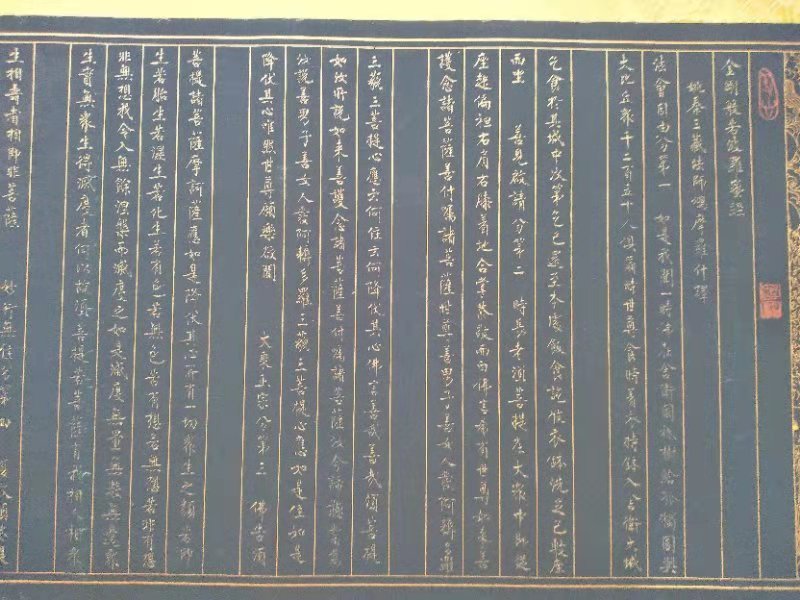 金剛般若波羅蜜經
姚秦三藏法師鳩摩羅什譯
法會因由分第一 如是我聞一時佛在舍衛國祇樹給孤獨園與
大比丘眾千二百五十人俱爾時世尊食時著衣持鉢入舍衛大城
乞食於其城中次第乞已還至本處飯食訖收衣鉢洗足已敷座
而坐 善現啟請分第二 時長老須菩提在大眾中即從
座起偏袒右肩右膝著地合掌恭敬而白佛言希有世尊如來善
護念諸菩薩善付囑諸菩薩世尊善男子善女人發阿耨多羅
三藐三菩提心應云何住云何降伏其心佛言善哉善哉須菩提
如汝所說如來善護念諸菩薩善付囑諸菩薩汝今諦聽當為
汝說善男子善女人發阿耨多羅三藐三菩提心應如是住如是
降伏其心唯然世尊願樂欲聞 大乘正宗分第三 佛告須
菩提諸菩薩摩訶薩應如是降伏其心所有一切眾生之類若卵
生若胎生若濕生若化生若有色若無色若有想若無想若非有想
非無想我令入無餘涅槃而滅度之如是滅度無量無數無邊眾
生實無眾生得滅度者何以故須菩提若菩薩有我相人相眾
生相壽者相即非菩薩 妙行無住分第四